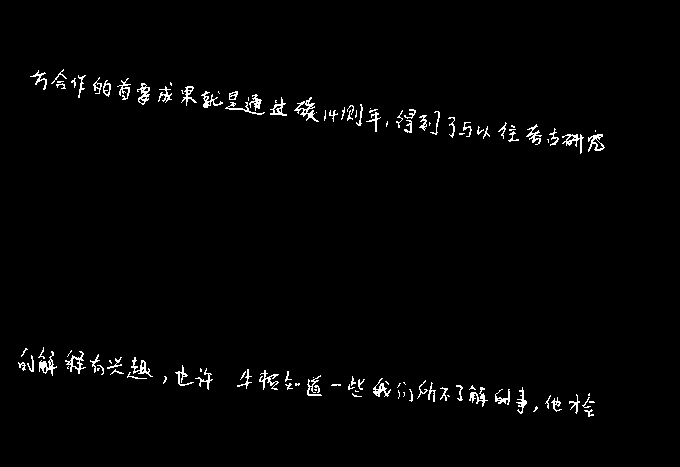 方合作的首要成果就是通过碳14测年,得到了与以往考古研究
的解释有兴趣,也许牛顿知道一些我们所不了解的事,他才会